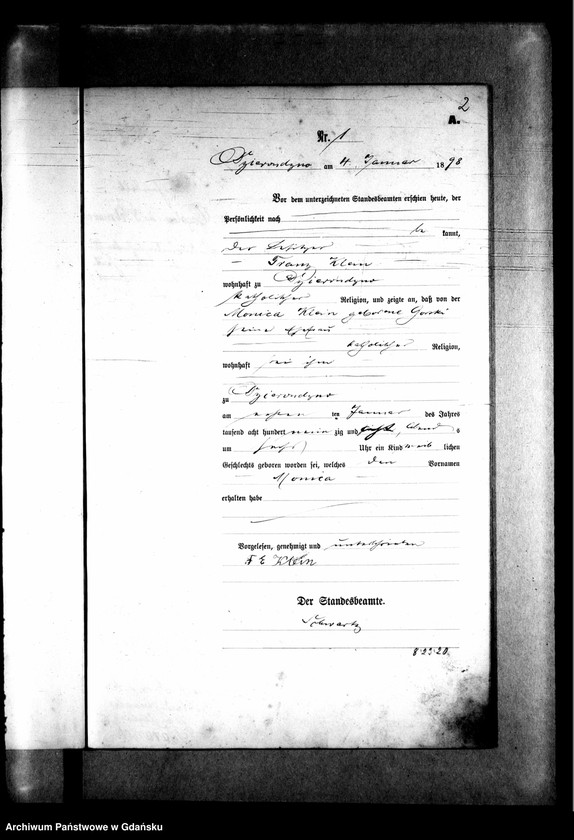 2
A.
Nr. 1
Dzierondzno am 4. Januar 1898
Vor dem unterzeichneten Standesbeamten erschien heute, der
Persönlichkeit nach
be kannt,
der Besitzer
Franz Klein
wohnhaft zu Dzierondzno
katholischer Religion, und zeigte an, daß von der
Monica Klein geborene Gorski
seine Ehefrau
katholischer Religion,
wohnhaft bei ihm
zu Dzierondzno
am ersten ten Januar des Jahres
tausend acht hundert neun zig und acht, Abend s
um Uhr ein Kind weib lichen
Geschlechts geboren worden sei, welches den Vornamen
Monica
erhalten habe
Vorgelesen, genehmigt und unterschrieben
Klein
Der Standesbeamte.
Schwartz
8·23·20.
Archiwum Państwowe w Gdańsku